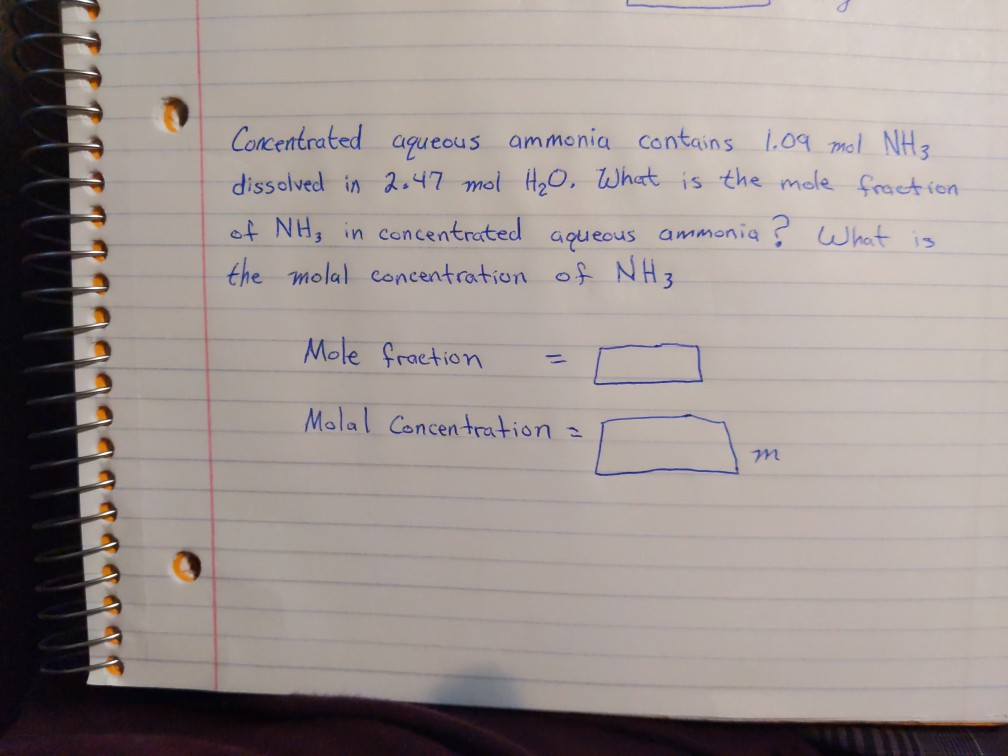 Concentrated aqueous ammonia contains 1.09 mol NH₃
dissolved in 2.47 mol H₂O. What is the mole fraction
of NH₃ in concentrated aqueous ammonia? What is
the molal concentration of NH₃
Mole fraction =
Molal Concentration = m